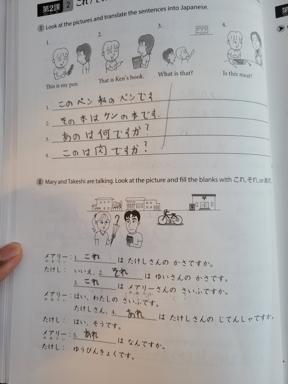 第2課 2
Look at the pictures and translate the sentences into Japanese.
1.
2.
3.
4.
This is my pen.
That is Ken's book.
What is that?
Is this meat?
1. このペン 私のペンです
2. その本は ケンの本です.
3. あのは 何ですか?
4. このは 肉ですか?
Mary and Takeshi are talking. Look at the picture and fill the blanks with これ, それ, or あれ.
メアリー: 1. これ は たけしさんの かさですか。
たけし: いいえ、2. それ は ゆいさんの かさです。
3. これ は メアリーさんの さいふですか。
メアリー: はい、わたしの さいふです。
たけしさん、4. あれ は たけしさんの じてんしゃですか。
たけし: はい、そうです。
メアリー: 5. あれ は なんですか。
たけし: ゆうびんきょくです。